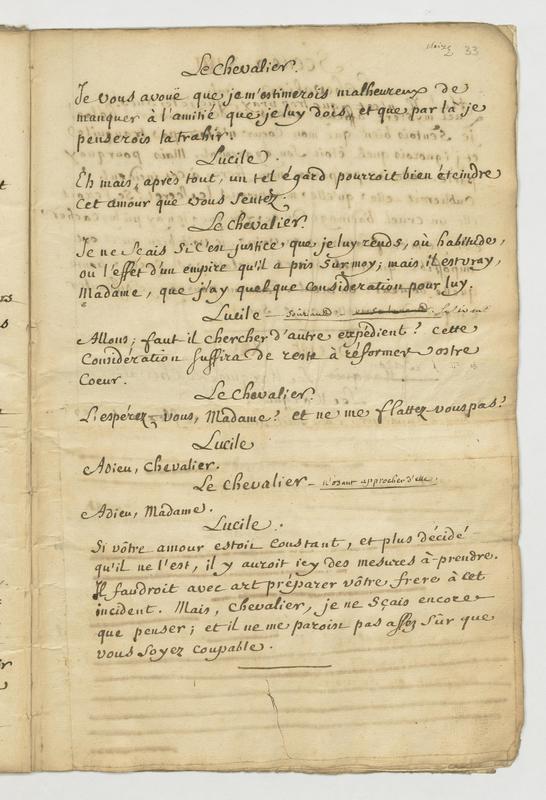 33
Le Chevalier.
Je vous avoüe que je m'estimerois malheureux de
manquer à l'amitié que je luy dois, et que par là je
penserois la trahir.
Lucile.
Eh mais, après tout, un tel égard pourroit bien éteindre
Cet amour que vous Sentez.
Le Chevalier.
Je ne Sçais Si c'est justice que je luy rends, où habitude,
où l'effet d'un empire qu'il a pris Sur moy; mais il est vray,
Madame, que j'ay quelque Consideration pour luy.
Lucile
Allons; faut il chercher d'autre expédient? Cette
Consideration Suffira de reste à réformer vostre
Coeur.
Le Chevalier.
L'espérez vous, Madame? et ne me flattez vous pas?
Lucile
Adieu, Chevalier.
Le Chevalier – n'osant approcher d'elle.
Adieu, Madame.
Lucile.
Si vôtre amour estoit Constant, et plus décidé
qu'il ne l'est, il y auroit icy des mesures à prendre.
Il faudroit avec art préparer vôtre frere à cet
incident. Mais, Chevalier, je ne Sçais encore
que penser; et il ne me paroist pas assez Sûr que
vous Soyez Coupable.